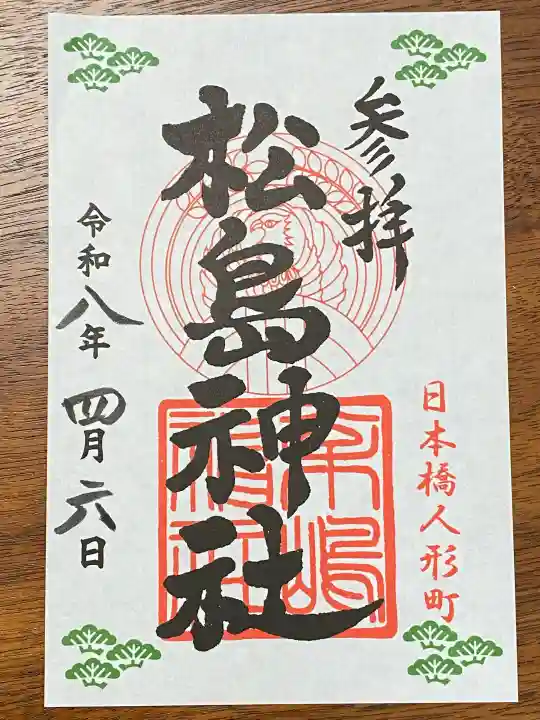 参拝
松島神社
日本橋人形町
令和八年 四月六日